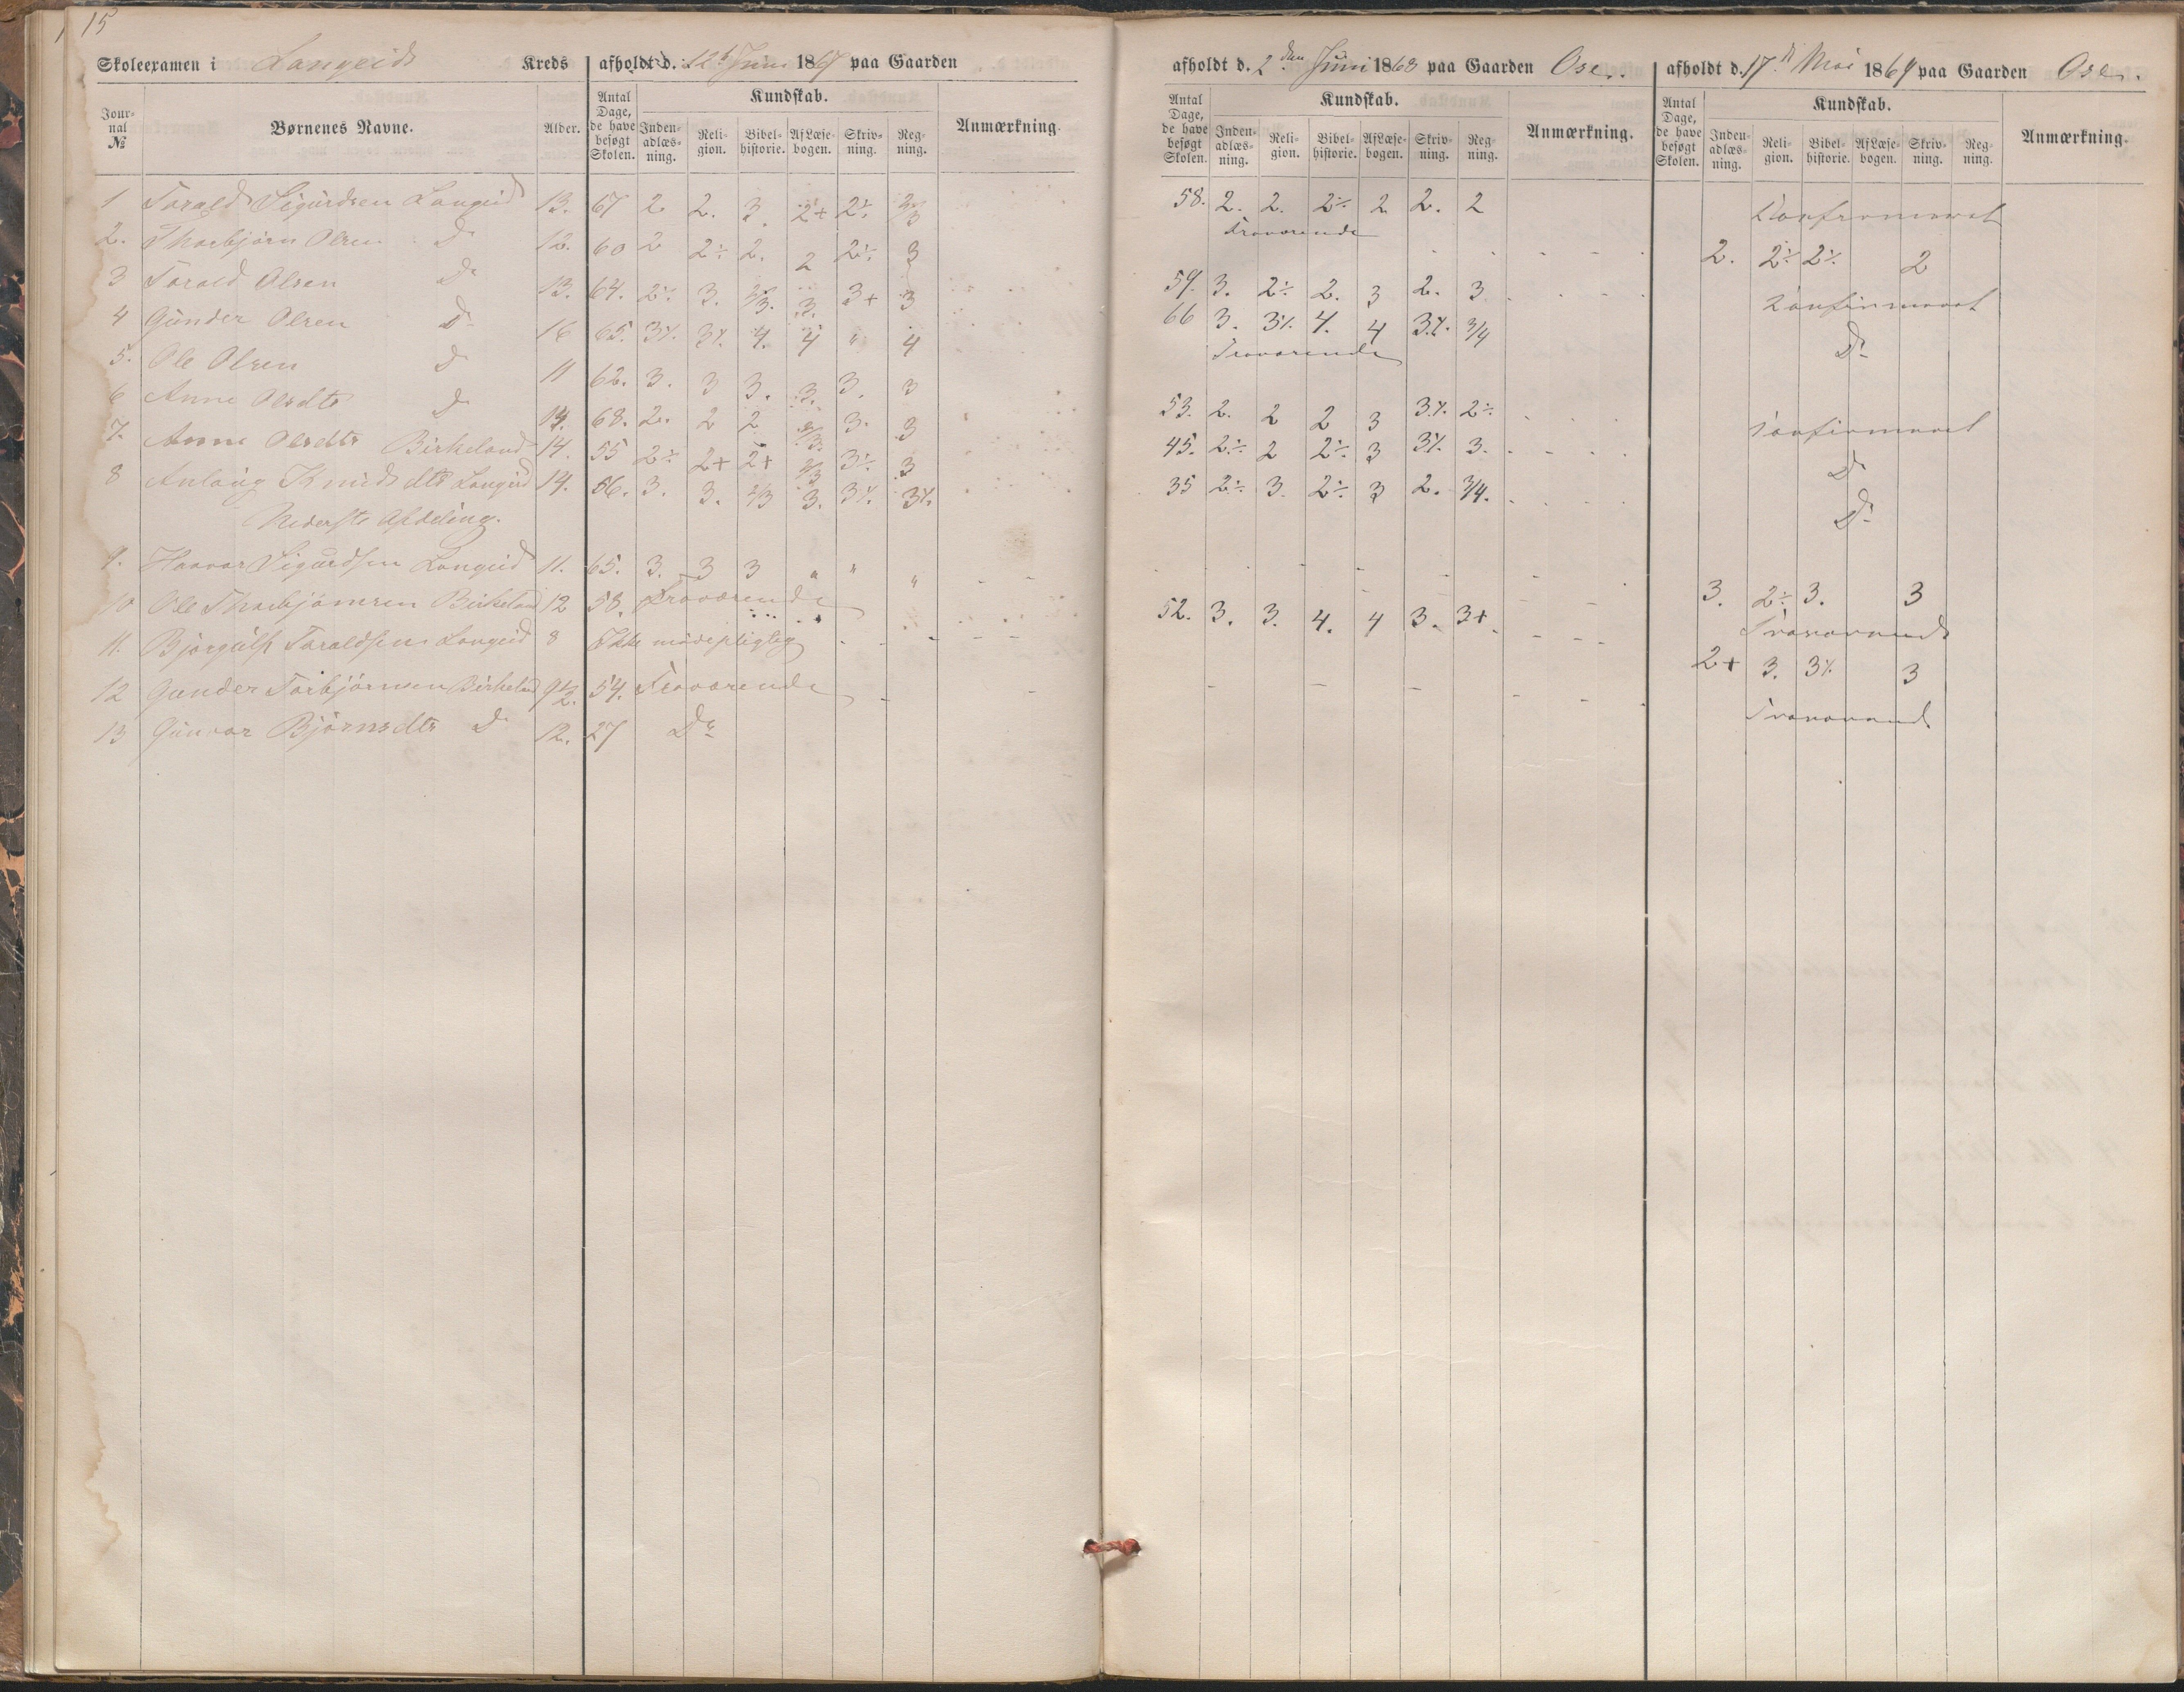 15
Skoleexamen i Langeids Kreds afholdt d. 12t Juni 1867 paa Gaarden
Journal No Børnenes Navne. Alder. Antal Dage, de have besøgt Skolen. Kundskab. Indenadlæsning. Religion. Bibelhistorie. Af Læsebogen. Skrivning. Regning. Anmærkning.
1 Torald Sigurdsen Langeid 13. 67 2. 2. 3. 2+ 2÷ 2/3
2. Thorbjörn Olsen Do 12. 60 2 2÷ 2. 2 2÷ 3
3 Torald Olsen Do 13. 64. 2÷ 3. 2/3. 3. 3+ 3
4 Gunder Olsen Do 16 65. 3÷ 3÷ 4. 4 " 4
5. Ole Olsen Do 11 62. 3. 3 3. 3. 3. 3
6 Anne Olsdtr Do 14. 68. 2. 2 2 2/3. 3. 3
7. Anne Olsdtr Birkeland 14. 55 2÷ 2+ 2+ 2/3 3÷ 3
8 Anlaug Knudsdtr Langeid 14. 56. 3. 3. 2/3 3. 3÷. 3÷.
Nederste Afdeling.
9. Haavor Sigurdsen Langeid 11. 65. 3. 3 3 " " "
10 Ole Thorbjörnsen Birkeland 12 58. Fraværende
11. Björgulf Taraldsen Langeid 8 Ikke mödepligtig
12 Gunder Torbjörnsen Birkeland 9 1/2. 54. Fraværende
13 Gunvor Björnsdtr Do 12. 27 Do
afholdt d. 2den Juni 1868 paa Gaarden Ose.
Antal Dage, de have besøgt Skolen. Kundskab. Indenadlæsning. Religion. Bibelhistorie. Af Læsebogen. Skrivning. Regning. Anmærkning.
58. 2. 2. 2÷ 2 2. 2
Fraværende
59. 3. 2÷ 2. 3 2. 3
66 3. 3÷. 4. 4 3÷. 3/4
Fraværende
53. 2. 2 2 3 3÷. 2÷
45. 2÷ 2 2÷ 3 3÷ 3.
35 2÷ 3. 2÷ 3 2. 3/4.
52. 3. 3. 4. 4 3. 3+
afholdt d. 17d Mai 1869 paa Gaarden Ose.
Antal Dage, de have besøgt Skolen. Kundskab. Indenadlæsning. Religion. Bibelhistorie. Af Læsebogen. Skrivning. Regning. Anmærkning.
Konfirmeret
2. 2÷ 2÷ 2
Konfirmeret
Do
Konfirmeret
Do
Do
3. 2÷ 3. 3
Fraværende
2+ 3. 3÷ 3
Fraværende